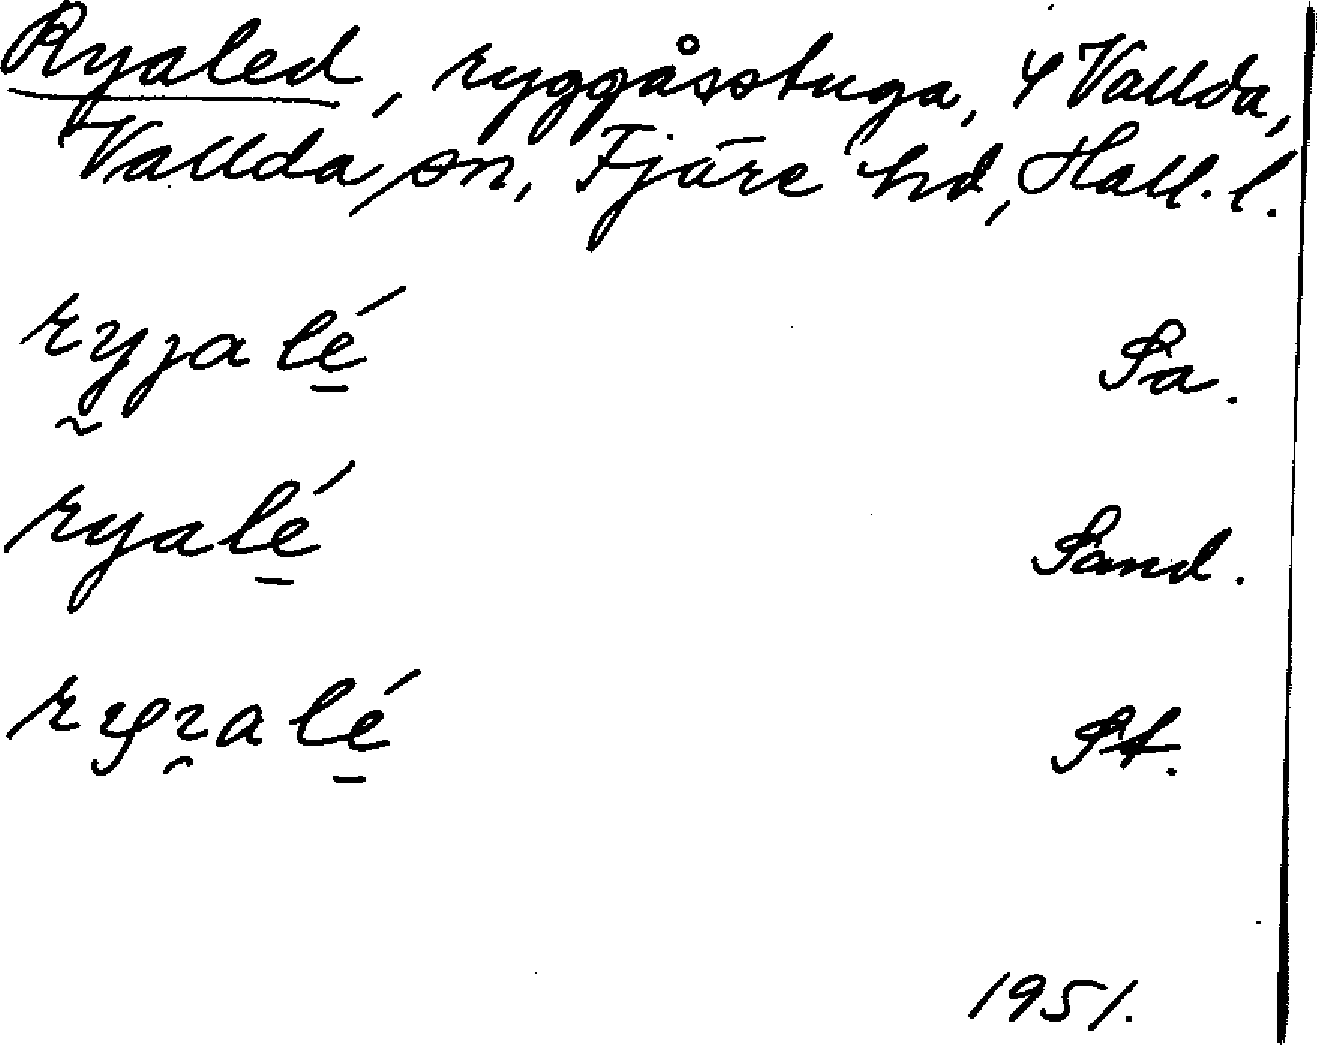 Ryaled, ryggåsstuga, 4 Vallda,
Vallda sn, Fjäre hd, Hall. l.
ryjalé Sa.
ryalé Sand.
St.
1951.